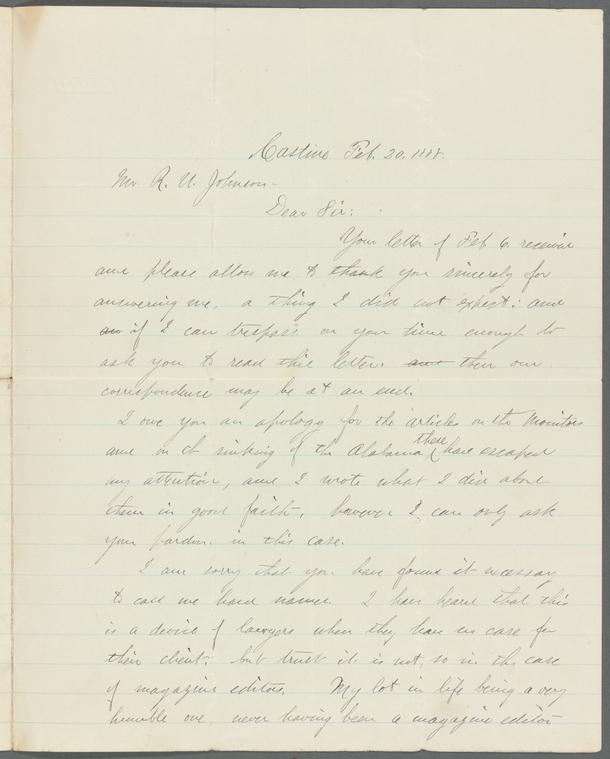 Castine Feb. 20. 1888.
Mr. R. U. Johnson.
Dear Sir:
Your letter of Feb 6. receive
and please allow me to thank you sincerely for
answering me, a thing I did not expect; and
if I can trespass on your time enough to
ask you to read this letter. and then our
correspondence may be at an end.
I owe you an apology for the articles on the Monitors
and on the sinking of the Alabama, these have escaped
my attention, and I wrote what I did about
them in good faith, however I can only ask
your pardon in this case.
I am sorry that you have found it necessary
to call me hard names. I have heard that this
is a device of lawyers when they have no case for
their client, but trust it is not so in the case
of magazine editors. My lot in life being a very
humble one, never having been a magazine editor